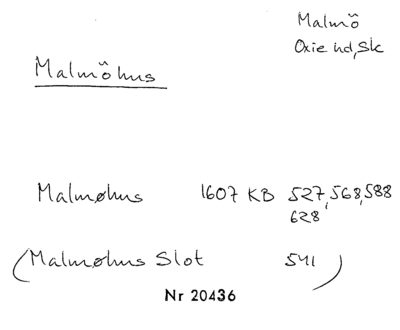 Malmö
Oxie hd, Sk
Malmöhus
Malmøhus 1607 KB 527, 568, 588
628
(Malmøhus Slot 541)
Nr 20436